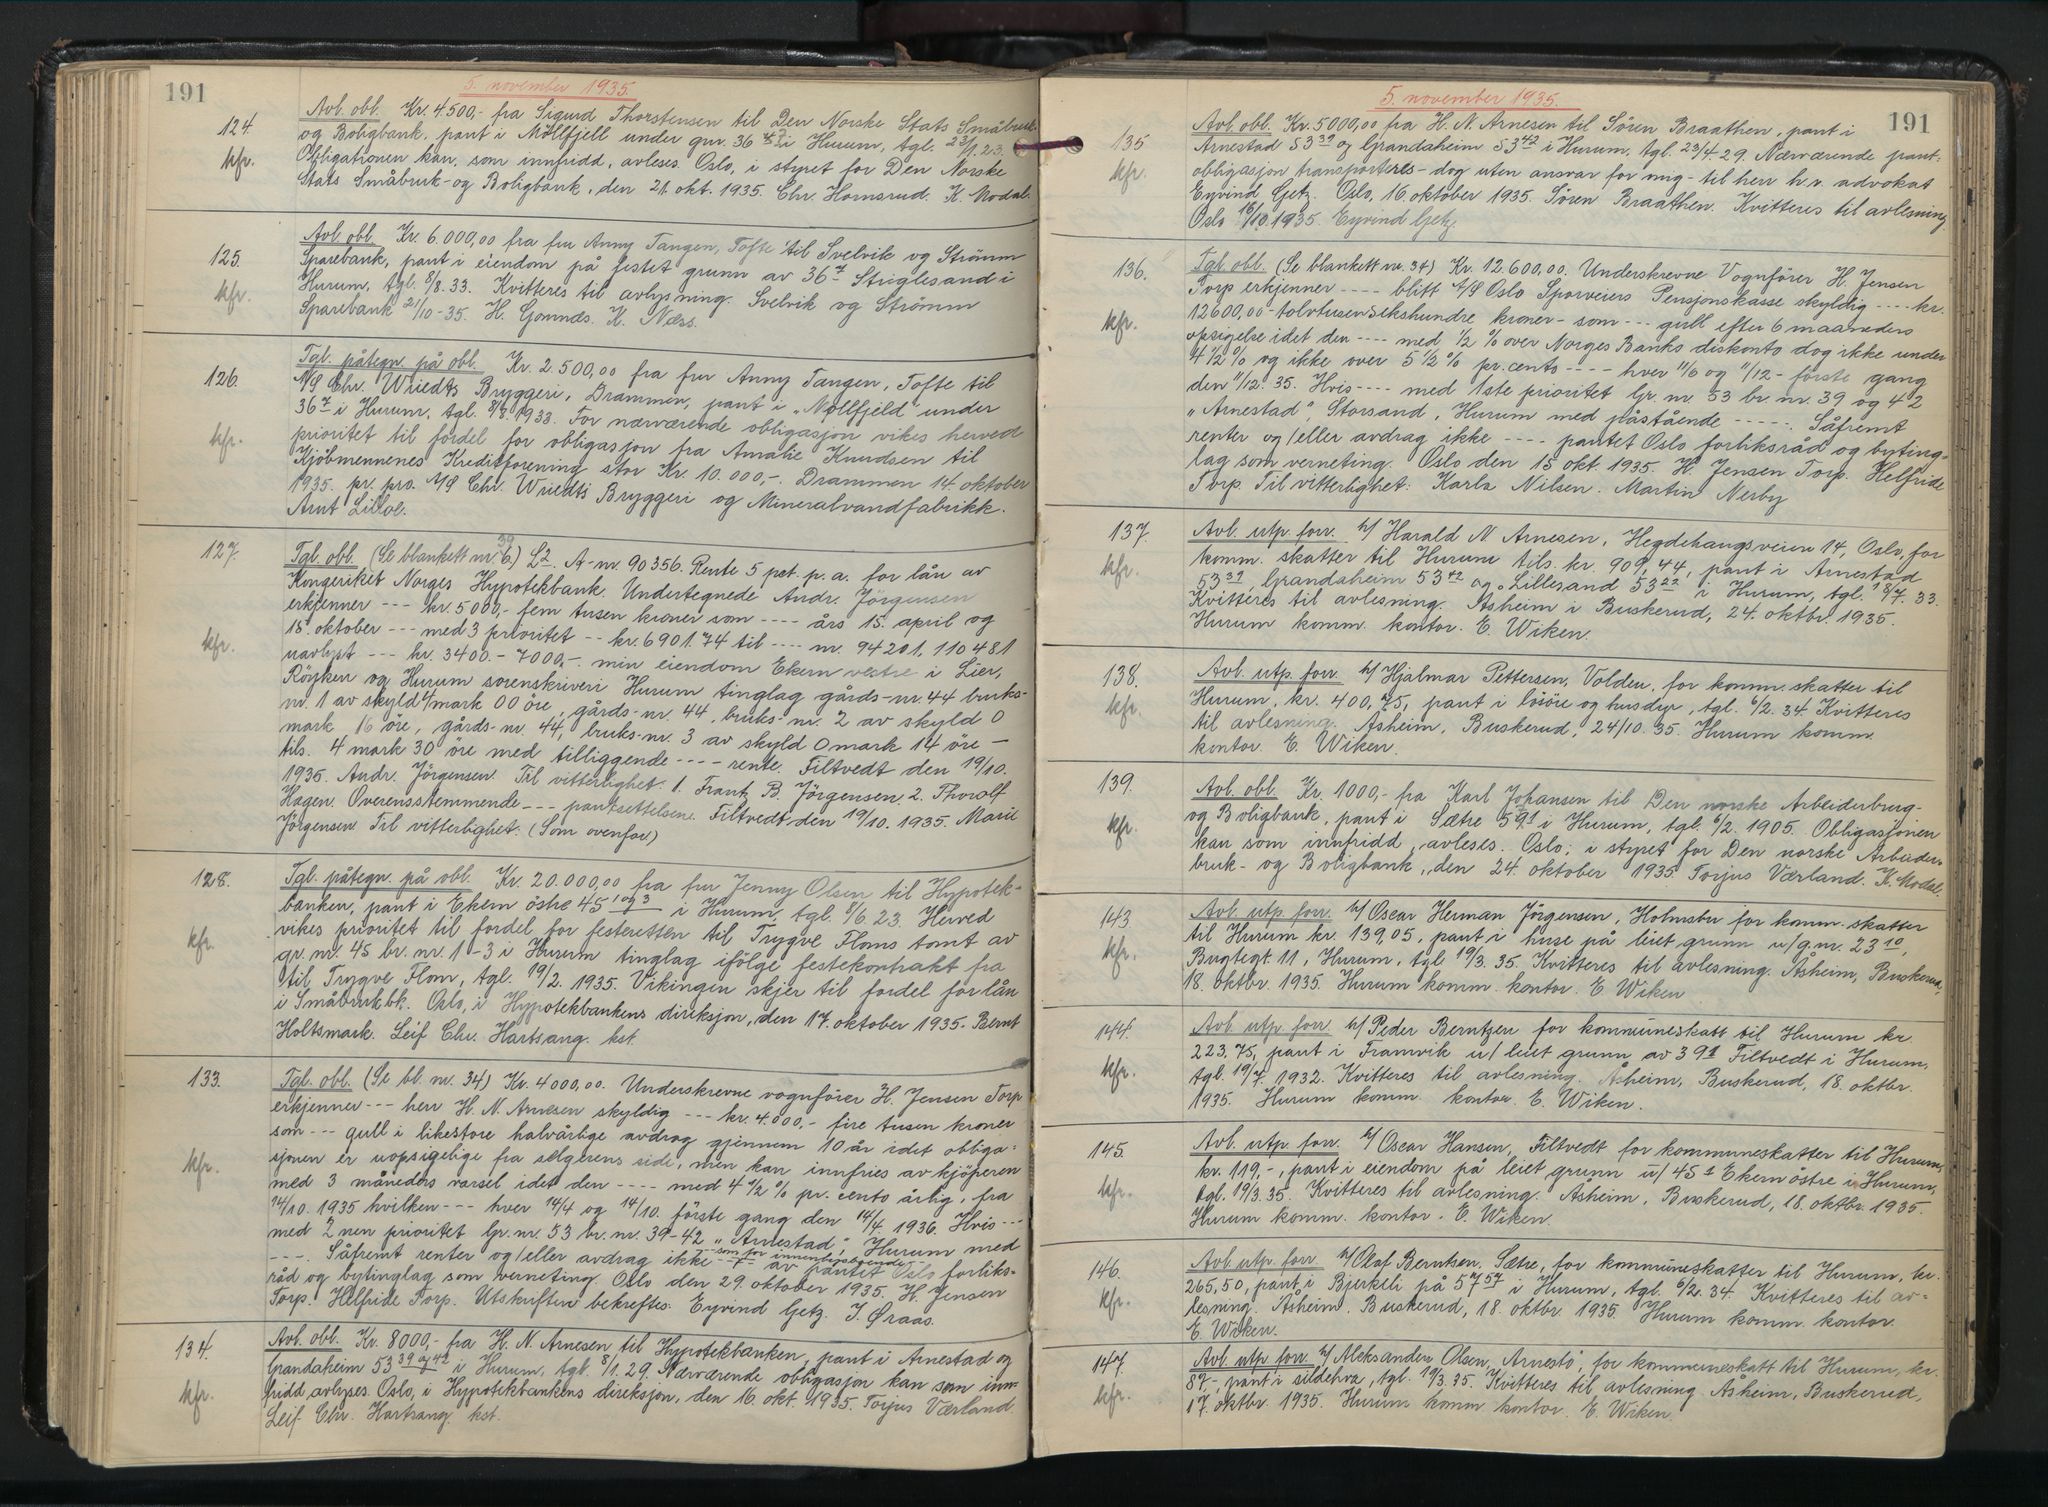 191
5. november 1935.
124.
kfr.
Avl. obl. Kr. 4500,- fra Sigurd Thorstensen til Den Norske Stats Småbruk-
og Boligbank, pant i Møllfjell under gnr. 36 i Hurum, tgl. 23/1.23.
Obligationen kan, som innfridd, avleses. Oslo, i styret for Den Norske
Stats Småbruk- og Boligbank, den 21. okt. 1935. Chr. Hornsrud. K. Modal.
125.
kfr.
Avl. obl. Kr. 6.000,00 fra fru Anny Tangen, Tofte til Svelvik og Strömm
Sparebank, pant i eiendom på festet grunn av 36⁷ Stiglesand i
Hurum, tgl. 8/8. 33. Kvitteres til avlysning. Svelvik og Strömm
Sparebank 21/10-35. H. Gomnæs. K. Næss.
126.
kfr.
Tgl. påtegn. på obl. Kr. 2500,00 fra fru Anny Tangen, Tofte til
A/S Chr. Wriedts Bryggeri, Drammen, pant i "Møllfjeld" under
36⁷ i Hurum, tgl. 8/8. 1933. For nærværende obligasjon vikes herved
prioritet til fordel for obligasjon fra Amalie Knudsen til
Kjöbmennenes Kreditforening stor Kr. 10.000,-. Drammen 14. oktober
1935. pr. pro. A/S Chr. Wriedts Bryggeri og Mineralvandfabrikk.
Arnt Lilloe.
127.
kfr.
Tgl. obl. (Se blankett nr. 6.) 39 L2. A-nr. 90356. Rente 5 pct. p. a. for lån av
Kongeriket Norges Hypotekbank. Undertegnede Andr. Jörgensen
erkjenner --- kr. 5000,- fem tusen kroner som ---- års 15. april og
15. oktober --- med 3 prioritet -- kr. 6901.74 til ---- nr. 94201, 110481
uavlyst --- kr. 3400.- 7000,-. min eiendom Ekern vestre i Lier,
Röyken og Hurum sorenskriveri Hurum tinglag gårds-nr. 44 bruks-
nr. 1 av skyld 4 mark 00 öre, gårds-nr. 44, bruks-nr. 2 av skyld 0
mark 16 öre, gårds-nr. 44, bruks-nr. 3 av skyld 0 mark 14 öre -
tils. 4 mark 30 öre med tilliggende ---- rente. Filtvedt den 19/10.
1935. Andr. Jörgensen. Til vitterlighet: 1. Frantz B. Jörgensen. 2. Thorolf
Hagen. Overensstemmende --- pantsettelsene. Filtvedt den 19/10. 1935. Marie
Jörgensen Til vitterlighet: (Som ovenfor)
128.
kfr.
Tgl. påtegn. på obl. Kr. 20.000,00 fra fru Jenny Olsen til Hypotek-
banken, pant i Ekern östre 45 1 og 3 i Hurum, tgl. 9/6. 23. Herved
vikes prioritet til fordel for festeretten til Trygve Floms tomt av
gr. nr. 45 br. nr. 1-3 i Hurum tinglag ifölge festekontrakt fra
til Trygve Flom, tgl. 19/2. 1935. Vikingen skjer til fordel for lån
i Småbruk.bk. Oslo, i Hypotekbankens direksjon, den 17. oktober 1935. Bernt
Holtsmark. Leif Chr. Hartsang. kst.
133.
kfr.
Tgl. obl. (Se bl. nr. 34) Kr. 4000,00. Underskrevne vognförer H. Jensen Torp
erkjenner --- herr H. N. Arnesen skyldig --- kr. 4.000,- fire tusen kroner
som --- gull i likestore halvårlige avdrag gjennem 10 år idet obliga-
sjonen er uopsigelige fra selgerens side, men kan innfries av kjöperen
med 3 måneders varsel idet den ---- med 4 1/2 % pr. cento årlig, fra
14/10. 1935 hvilken --- hver 14/4 og 14/10. förste gang den 14/4. 1936. Hvis ---
med 2nen prioritet gr. nr. 53 br. nr. 39-42 "Arnestad", Hurum med
---. Såfremt renter og/eller avdrag ikke --- av pantet Oslo forliks-
råd og bytinglag som verneting. Oslo den 29. oktober 1935. H. Jensen
Torp. Helfride Torp. Utskriften bekreftes: Eyvind Getz. J. Øraas.
134.
kfr.
Avl. obl. Kr. 8000,- fra H. N. Arnesen til Hypotekbanken, pant i Arnestad og
Grandaheim 53 39 og 42 i Hurum, tgl. 8/1. 29. Nærværende obligasjon kan som inn-
fridd, avlyses. Oslo, i Hypotekbankens direksjon, den 16. okt. 1935. Torjus Værland.
Leif Chr. Hartsang. kst.
191
5. november 1935.
135
kfr.
Avl. obl. Kr. 5000,00 fra H. N. Arnesen til Søren Braathen, pant i
Arnestad 53³⁹ og Grandaheim 53⁴² i Hurum, tgl. 23/4-29. Nærværende pant-
obligasjon transporteres - dog uten ansvar for mig - til herr h.r. advokat
Eyvind Getz. Oslo, 16. oktober 1935. Søren Braathen. Kvitteres til avlesning
Oslo 16/10. 1935. Eyvind Getz.
136.
kfr.
Tgl. obl. (Se blankett nr. 34) Kr. 12.600,00. Underskrevne Vognförer H. Jensen
Torp erkjenner ---- blitt A/S Oslo Sporveiers Pensjonskasse skyldig ---- kr.
12600,00 - tolvtusensekshundre kroner - som --- gull efter 6 maaneders
opsigelse idet den ---- med 1/2 % over Norges Banks diskonto dog ikke under
4 1/2 % og ikke over 5 1/2 % pr. cents ---- hver 11/6 og 11/12 - förste gang
den 11/12. 35. Hvis ---- med 1ste prioritet gr. nr. 53 br. nr. 39 og 42
"Arnestad", Storsand, Hurum med påstående -----. Såfremt
renter og/eller avdrag ikke ---- pantet Oslo forliksråd og byting-
lag som verneting. Oslo den 15 okt. 1935. H. Jensen Torp. Helfride
Torp. Til vitterlighet: Karla Nilsen. Martin Nerby
137.
kfr.
Avl. utp. forr. h/ Harald N. Arnesen, Hegdehaugsveien 14, Oslo, for
komm. skatter til Hurum tils. kr. 909,44, pant i Arnestad
53³⁹, Grandaheim 53⁴² og Lillesand 53²² i Hurum, tgl. 18/7. 33.
Kvitteres til avlesning. Åsheim i Buskerud, 24. oktbr. 1935.
Hurum komm. kontor. E. Wiken.
138.
kfr.
Avl. utp. forr. h/ Hjalmar Pettersen, Volden, for komm. skatter til
Hurum, kr. 400,75, pant i lösöre og husdyr, tgl. 6/2. 34. Kvitteres
til avlesning. Åsheim, Buskerud, 24/10. 35. Hurum komm.
kontor. E. Wiken.
139.
kfr.
Avl. obl. Kr. 1000,- fra Karl Johansen til Den norske Arbeiderbrug-
og Boligbank, pant i Sætre 59¹ i Hurum, tgl. 6/2. 1905. Obligasjonen
kan som innfridd, avleses. Oslo, i styret for Den norske Arbeider-
bruk- og Boligbank, den 24. oktober 1935. Torjus Værland. K. Modal.
143.
kfr.
Avl. utp. forr. h/ Oscar Herman Jörgensen, Holmsbu for komm. skatter
til Hurum kr. 139,05, pant i huse på leiet grunn u/g.nr. 23¹⁰,
Bugtegt. 11, Hurum, tgl 19/3. 35. Kvitteres til avlesning. Åsheim, Buskerud,
18. oktbr. 1935. Hurum komm. kontor. E. Wiken
144.
kfr.
Avl. utp. forr. h/ Peder Berntzen for kommuneskatt til Hurum kr.
223.75, pant i Framvik u/ leiet grunn av 39¹ Filtvedt i Hurum,
tgl. 19/7. 1932. Kvitteres til avlesning. Åsheim, Buskerud, 18. oktbr.
1935. Hurum komm. kontor. E. Wiken.
145.
kfr.
Avl. utp. forr. h/ Oscar Hansen, Filtvedt for kommuneskatter til Hurum,
kr. 119,-, pant i eiendom på leiet grunn u/ 45¹ Ekern östre i Hurum,
tgl. 19/3. 35. Kvitteres til avlesning. Åsheim, Buskerud, 18. oktbr. 1935.
Hurum komm. kontor. E. Wiken.
146.
kfr.
Avl. utp. forr. h/ Olaf Berntsen, Sætre, for kommuneskatter til Hurum, kr.
265,50, pant i Bjerkeli på 57⁵⁷ i Hurum, tgl. 6/2. 34. Kvitteres til av-
lesning. Åsheim. Buskerud, 18. oktbr. 1935. Hurum komm. kontor.
E. Wiken.
147.
kfr.
Avl. utp. forr. h/ Aleksander Olsen, Arnestø, for kommuneskatt til Hurum, kr.
87,- pant i sildehva, tgl. 19/3. 35. Kvitteres til avlesning. Åsheim, Buskerud,
17. oktbr. 1935. Hurum komm kontor. E. Wiken.